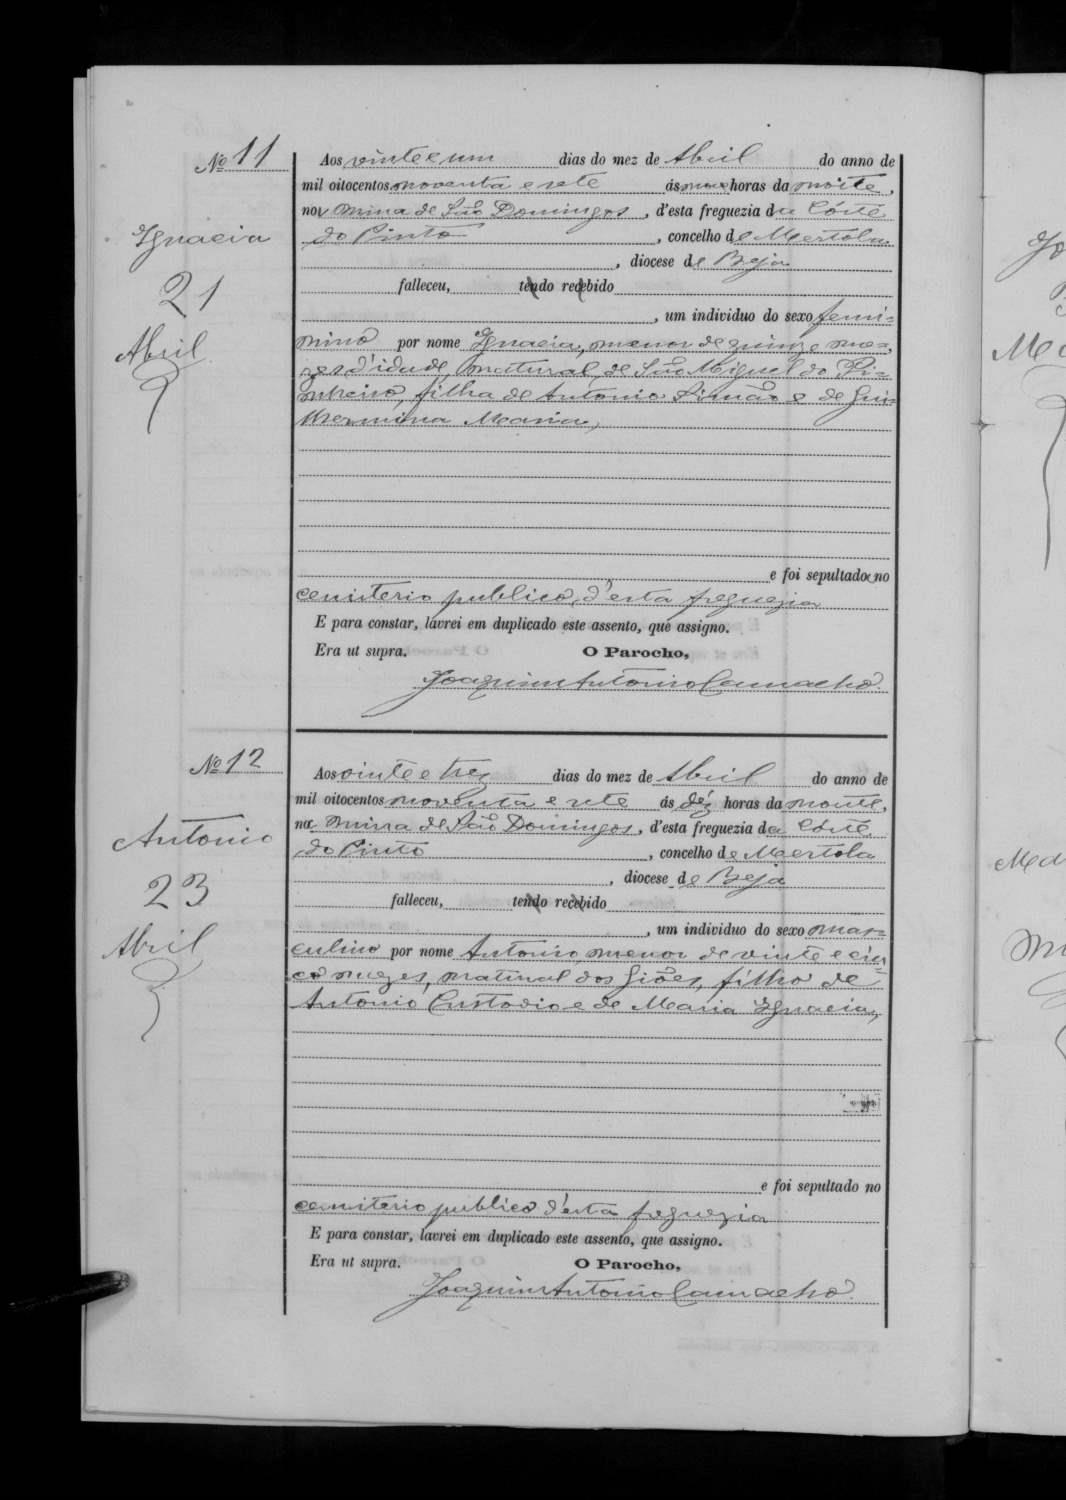 Nº 11
Aos vinte e um dias do mez de Abril do anno de
mil oitocentos noventa e sete ás nove horas da noite,
na mina de São Domingos, d'esta freguezia da Córte
do Pinto, concelho de Mertola
Ignacia
, diocese de Beja
falleceu, tendo recebido
21
, um individuo do sexo femi=
nino por nome Ignacia, menor de quinze me=
Abril
zes d'idade, natural de São Miguel do Pi=
nheiro, filha de Antonio Simão e de Gui=
lhermina Maria,
e foi sepultado no
cemiterio publico d'esta freguezia
E para constar, lavrei em duplicado este assento, que assigno.
Era ut supra. O Parocho,
Joaquim Antonio Camacho.
Nº 12
Aos vinte e trez dias do mez de Abril do anno de
mil oitocentos noventa e sete ás déz horas da noute,
na mina de São Domingos, d'esta freguezia da Córte
Antonio
do Pinto, concelho de Mertola
, diocese de Beja
23
falleceu, tendo recebido
, um individuo do sexo mas=
Abril
culino por nome Antonio menor de vinte e cin=
co mezes, natural dos Giões, filho de
Antonio Custodio e de Maria Ignacia,
e foi sepultado no
cemiterio publico d'esta freguezia
E para constar, lavrei em duplicado este assento, que assigno.
Era ut supra. O Parocho,
Joaquim Antonio Camacho.